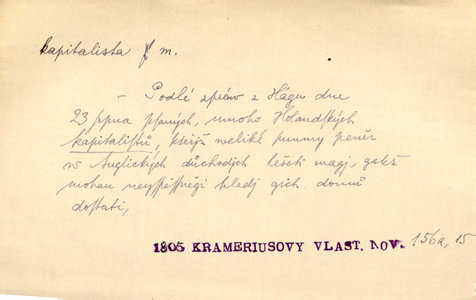 kapitalista m.
– Podlé zpráw z Hágu dne
23 ppna psaných, mnoho Holandských
kapitalistů, kteřjž weliké summy peněz
w Anglických důchodech ležeti magj, gakž
mohau neyspjssněgi hledj gich domů
dostati,
1805 KRAMERIUSOVY VLAST. NOV. 156a, 15